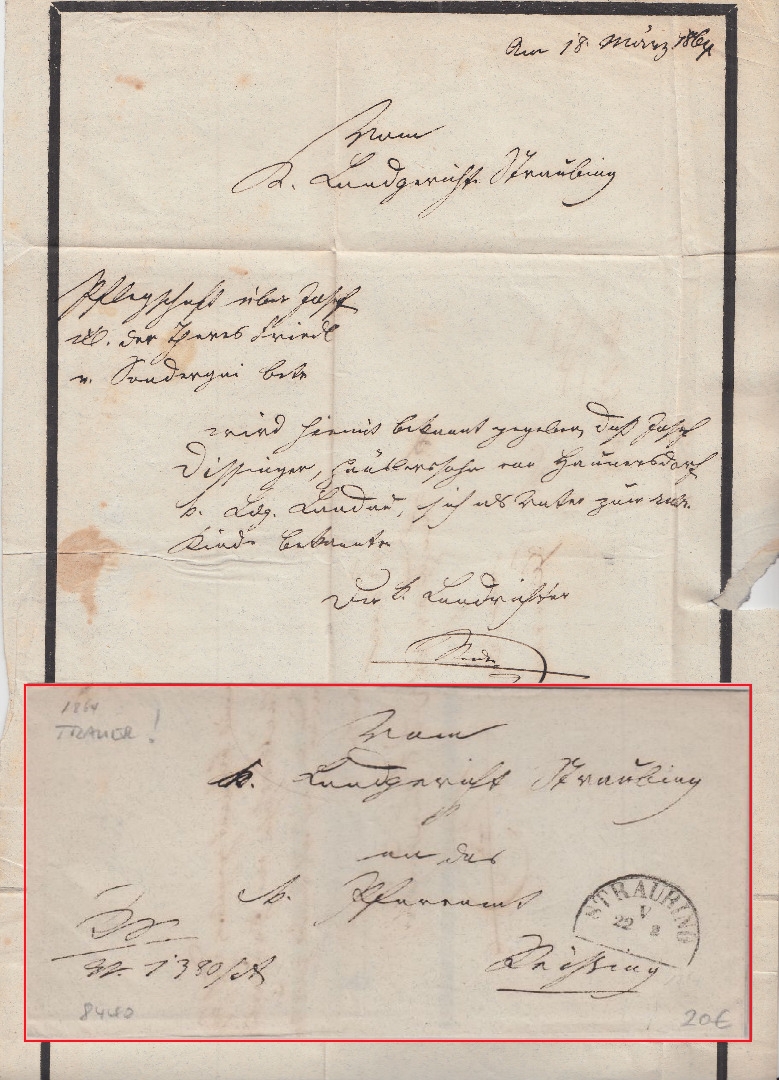 Am 18. März 1864
Vom
K. Landgericht Straubing
Pflegschaft über Josef
ill. der Theres Friedl
v. Sondergai betr
wird hiemit bekannt gegeben, daß Josef
Dissinger, Häuslerssohn von Haunersdorf
k. Ldg. Landau, sich als Vater zum
Kinde bekannte
Der k. Landrichter
1864
TRAUER!
Vom
k. Landgericht Straubing
an das
k. Pfarramt
STRAUBING
22
Reissing
1380
8440
20€